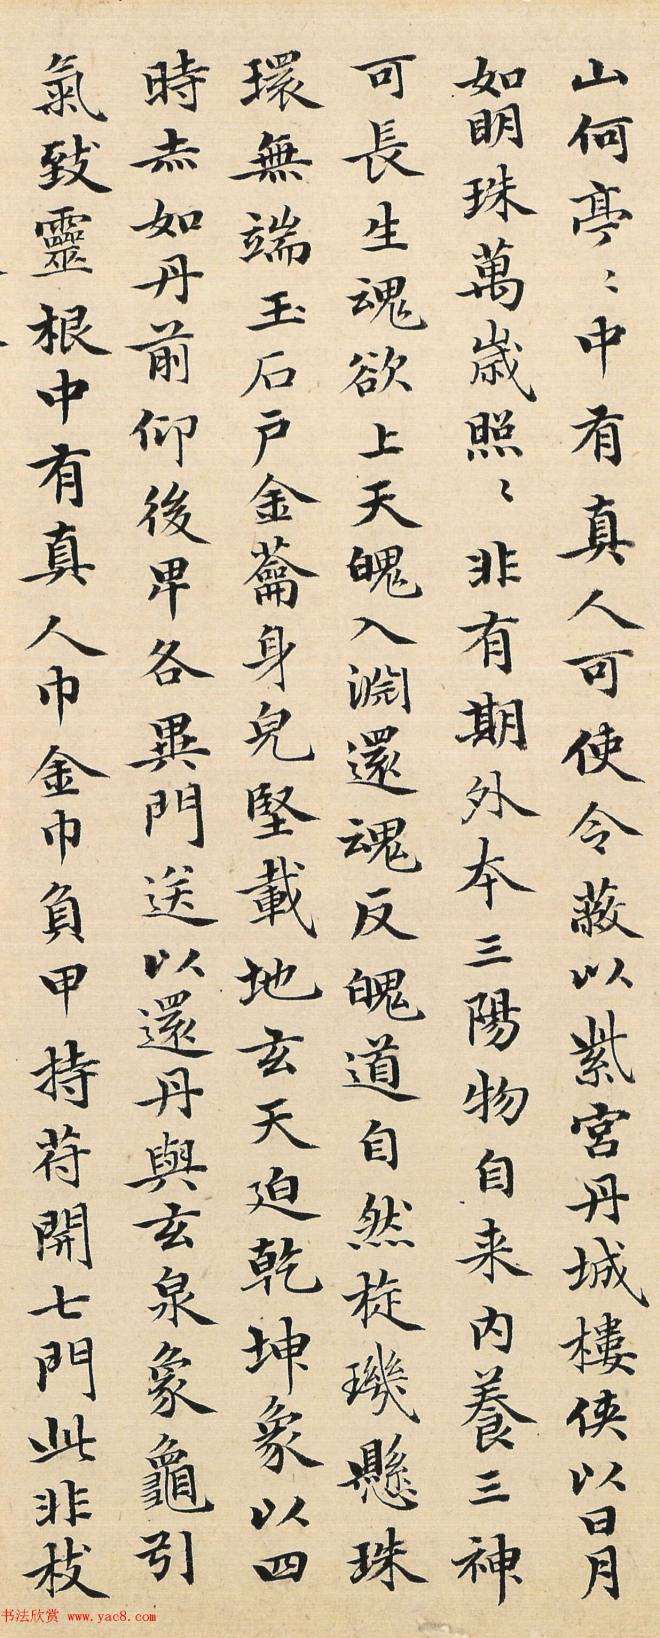 山何亭〻中有真人可使令蔽以紫宮丹城樓侠以日月
如明珠萬歳照〻非有期外夲三陽物自来內養三神
可長生魂欲上天魄入淵還魂反魄道自然㨔璣懸珠
環無端玉石戶金蘥身皃堅載地玄天迫乾坤象以四
時赤如丹前仰後卑各異門送以還丹與玄泉象龜引
氣致靈根中有真人巾金巾負甲持苻開七門此非枝
书法欣赏 www.yac8.com